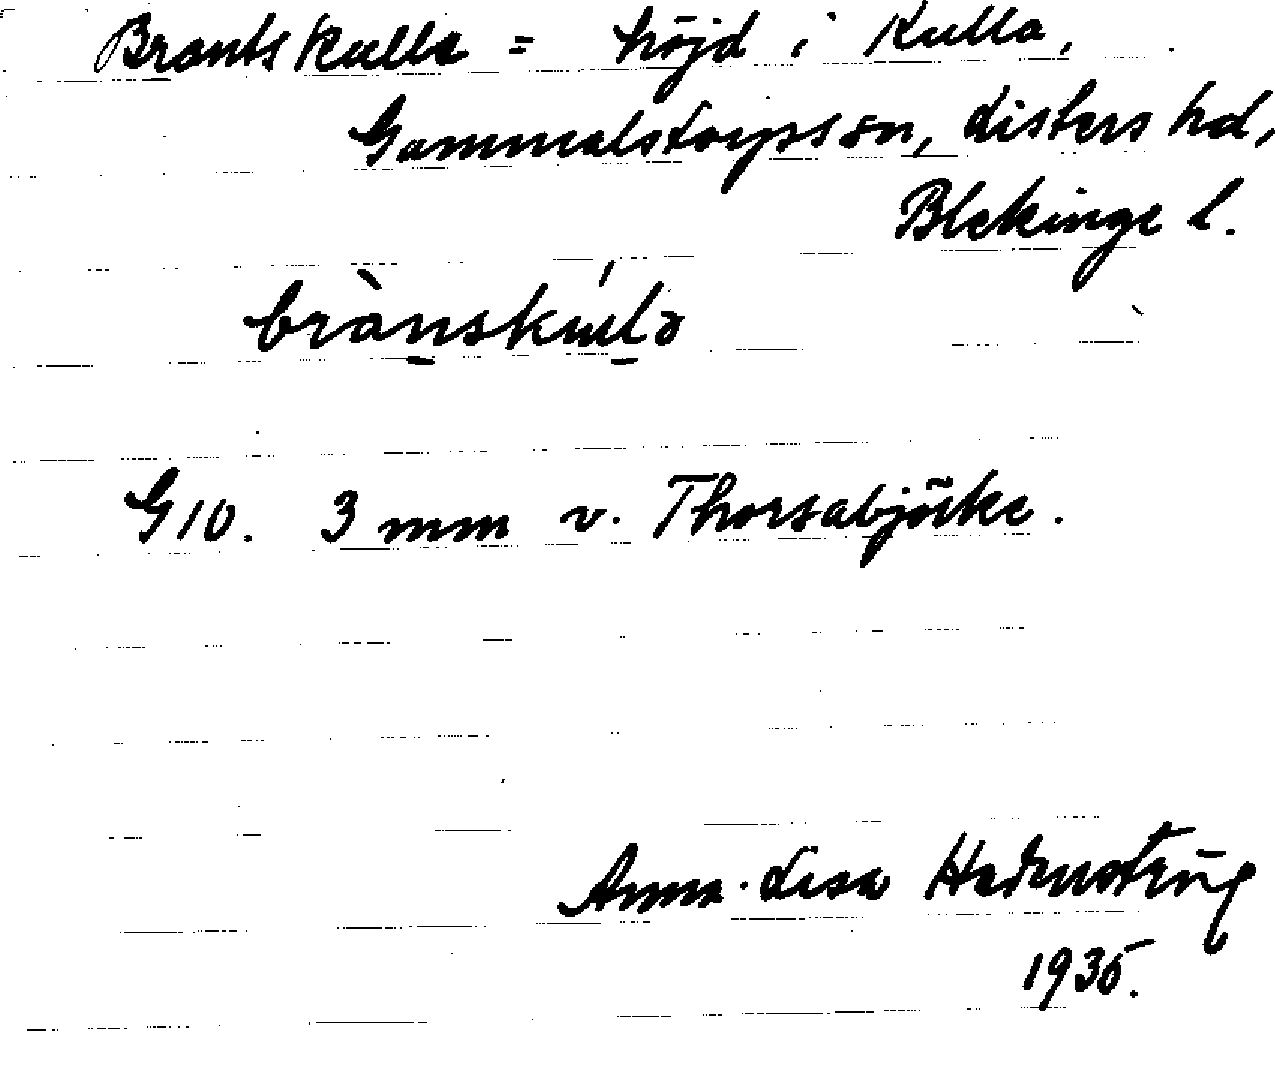 Brantskulla = höjd i Kulla,
Gammalstorps sn, Listers hd,
Blekinge l.
brànskúlə
G10. 3 mm v. Thorsabjörke.
Anna-Lisa
1935.